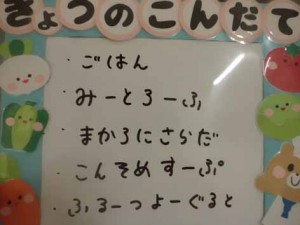 きょうのこんだて
・ごはん
・みーとろーふ
・まかろにさらだ
・こんそめすーぷ
・ふるーつよーぐると